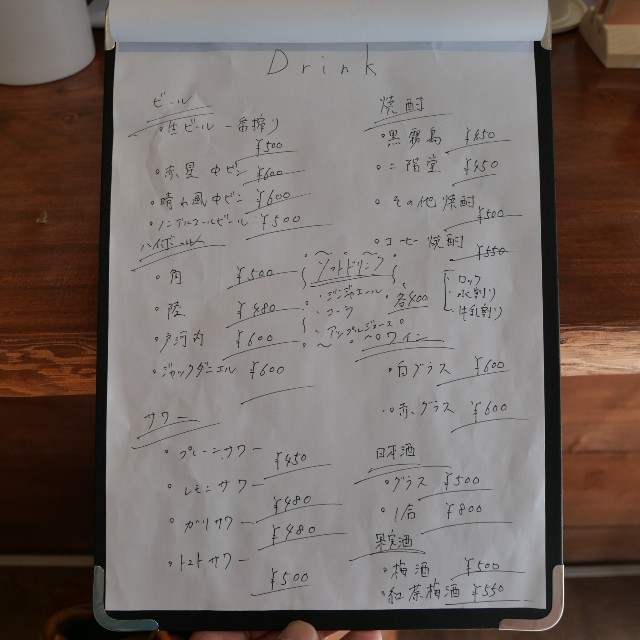 Drink
ビール
・生ビール 一番搾り
¥500
・赤星 中ビン ¥600
・晴れ風中ビン ¥600
・ノンアルコールビール ¥500
ハイボール
・角 ¥500
・陸 ¥480
・戸河内 ¥600
・ジャックダニエル ¥600
サワー
・プレーンサワー ¥450
・レモンサワー ¥480
・ガリサワー ¥480
・トマトサワー ¥500
ソフトドリンク
・ジンジャエール
・コーラ
・アップルジュース
各400
焼酎
・黒霧島 ¥450
・二階堂 ¥450
・その他焼酎 ¥500
・コーヒー焼酎 ¥550
ロック
水割り
牛乳割り
ワイン
・白グラス ¥600
・赤グラス ¥600
日本酒
・グラス ¥500
・1合 ¥800
果実酒
・梅酒 ¥500
・紅茶梅酒 ¥550